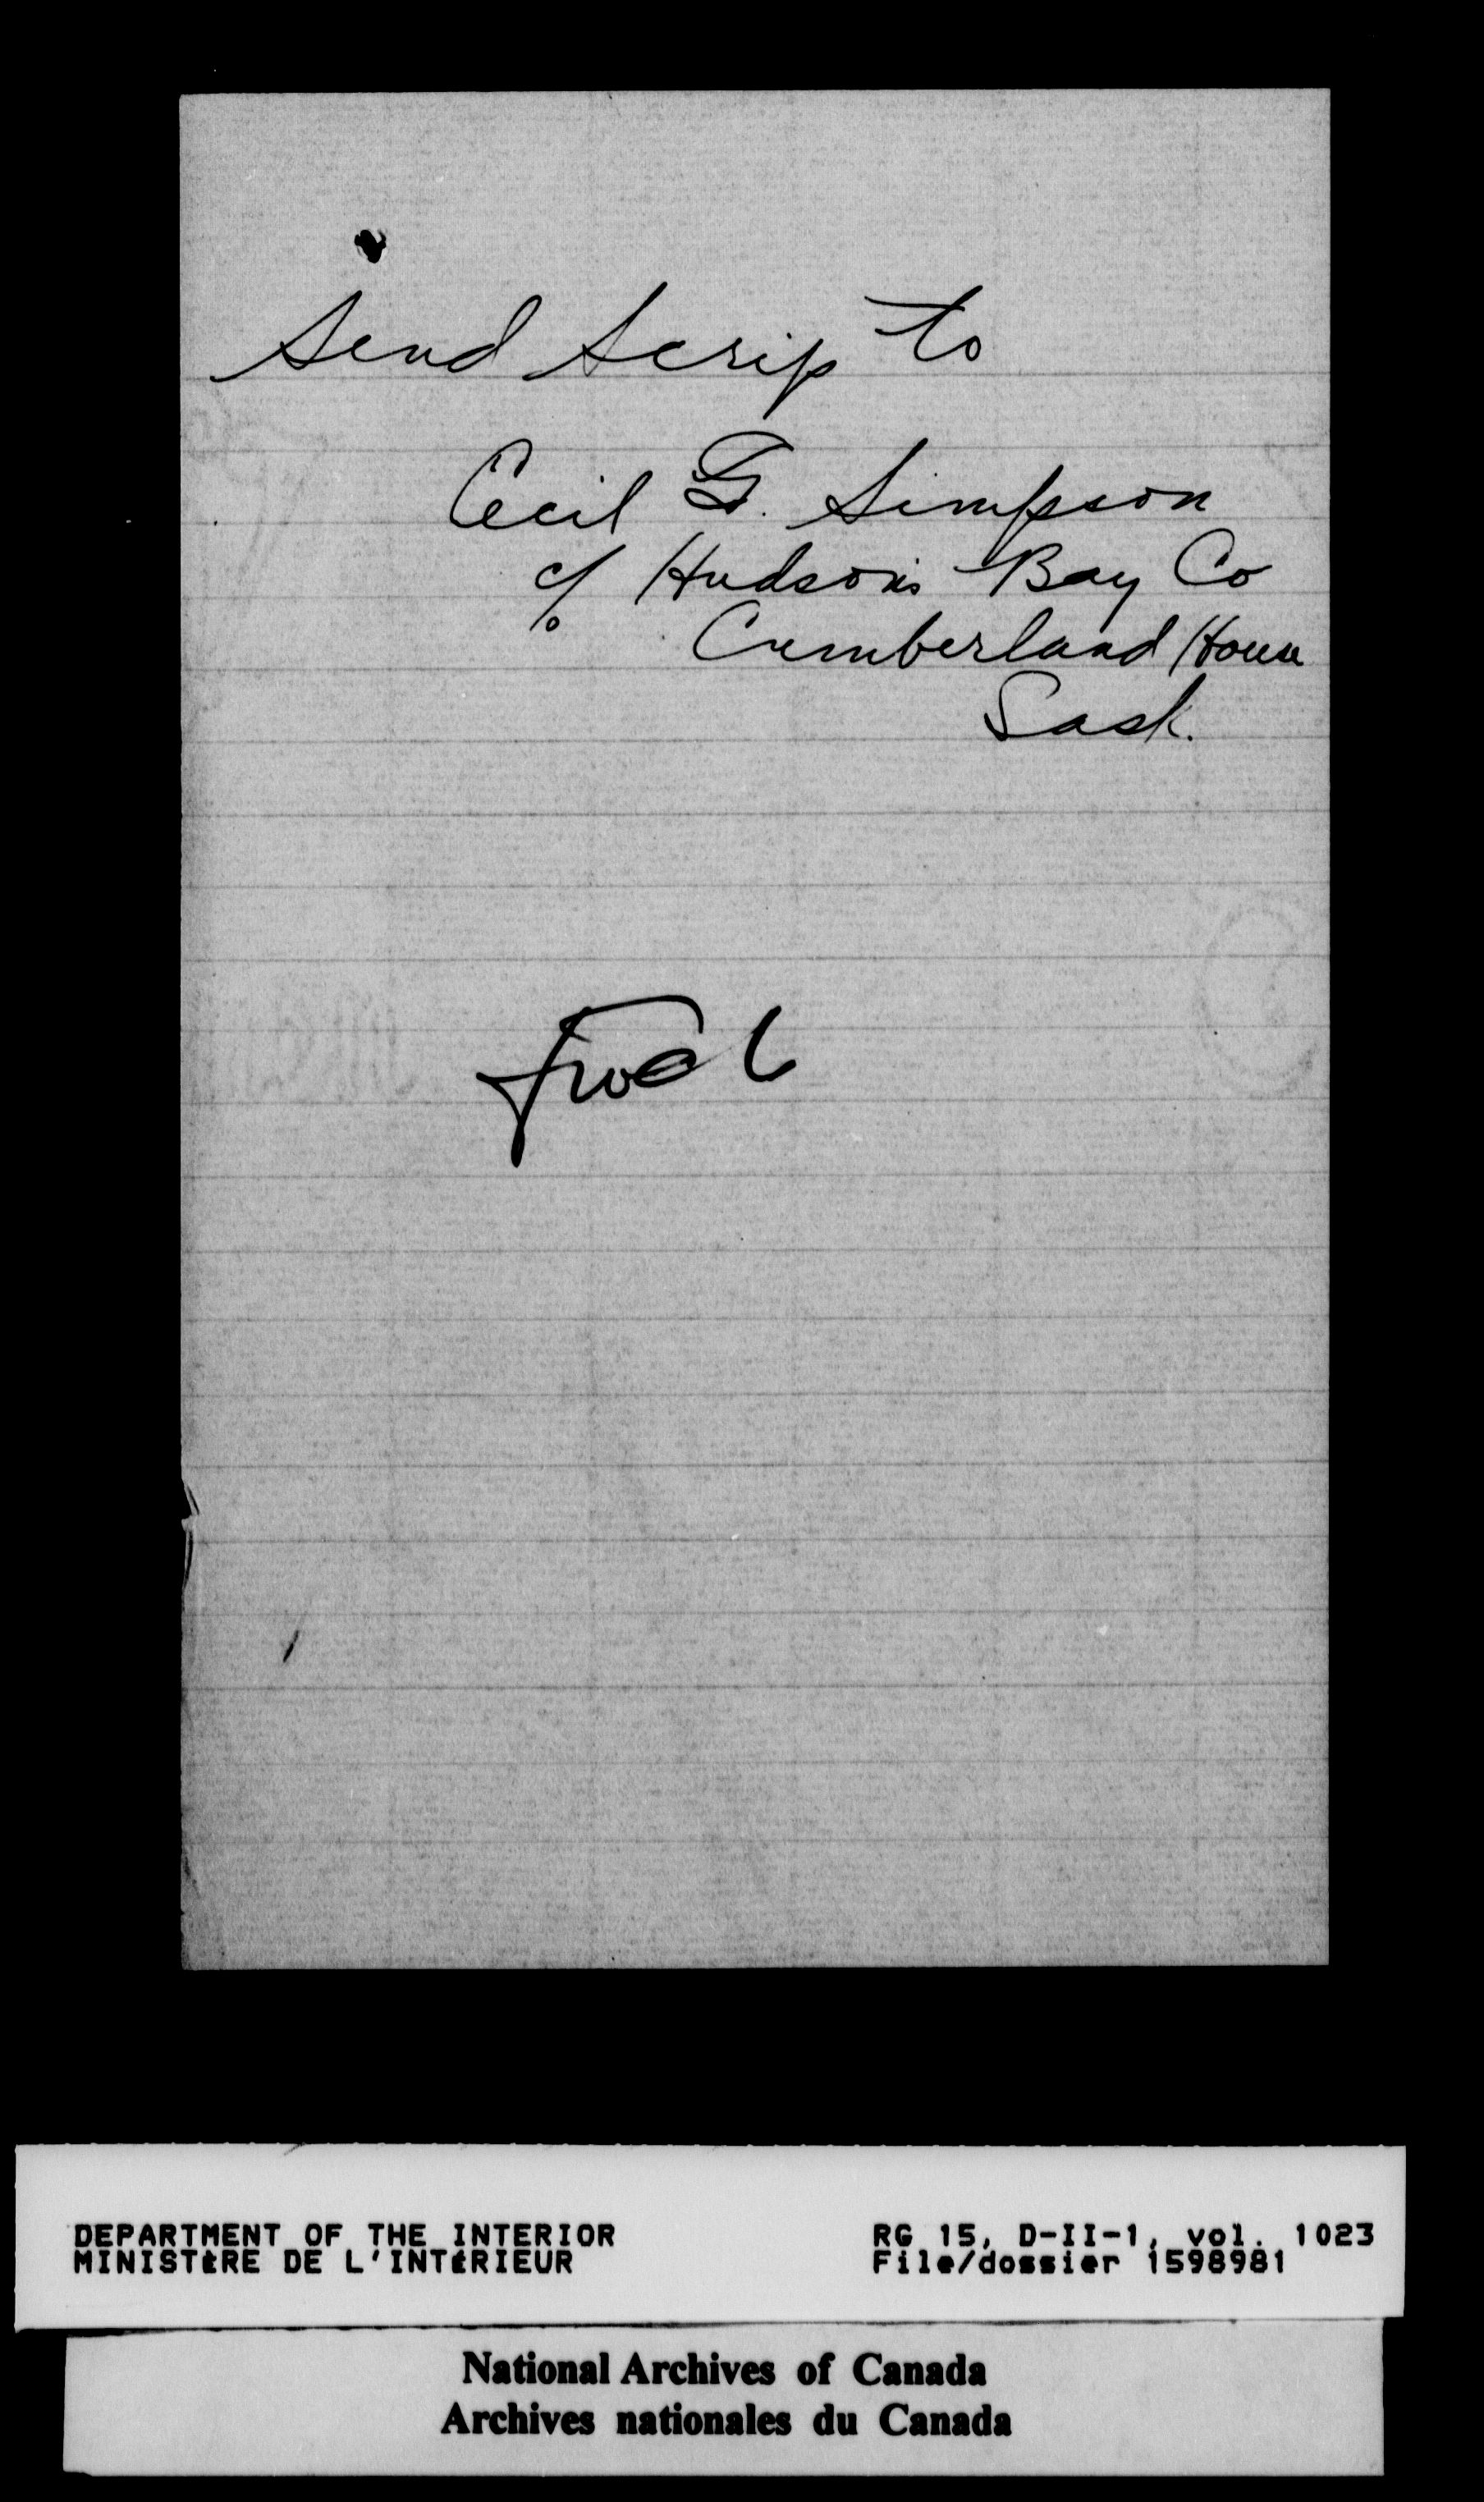 Send Scrip to
Cecil G. Simpson
c/o Hudson's Bay Co
Cumberland House
Sask.
DEPARTMENT OF THE INTERIOR
MINISTÈRE DE L'INTÉRIEUR
RG 15, D-II-1, vol. 1023
File/dossier 1598981
National Archives of Canada
Archives nationales du Canada